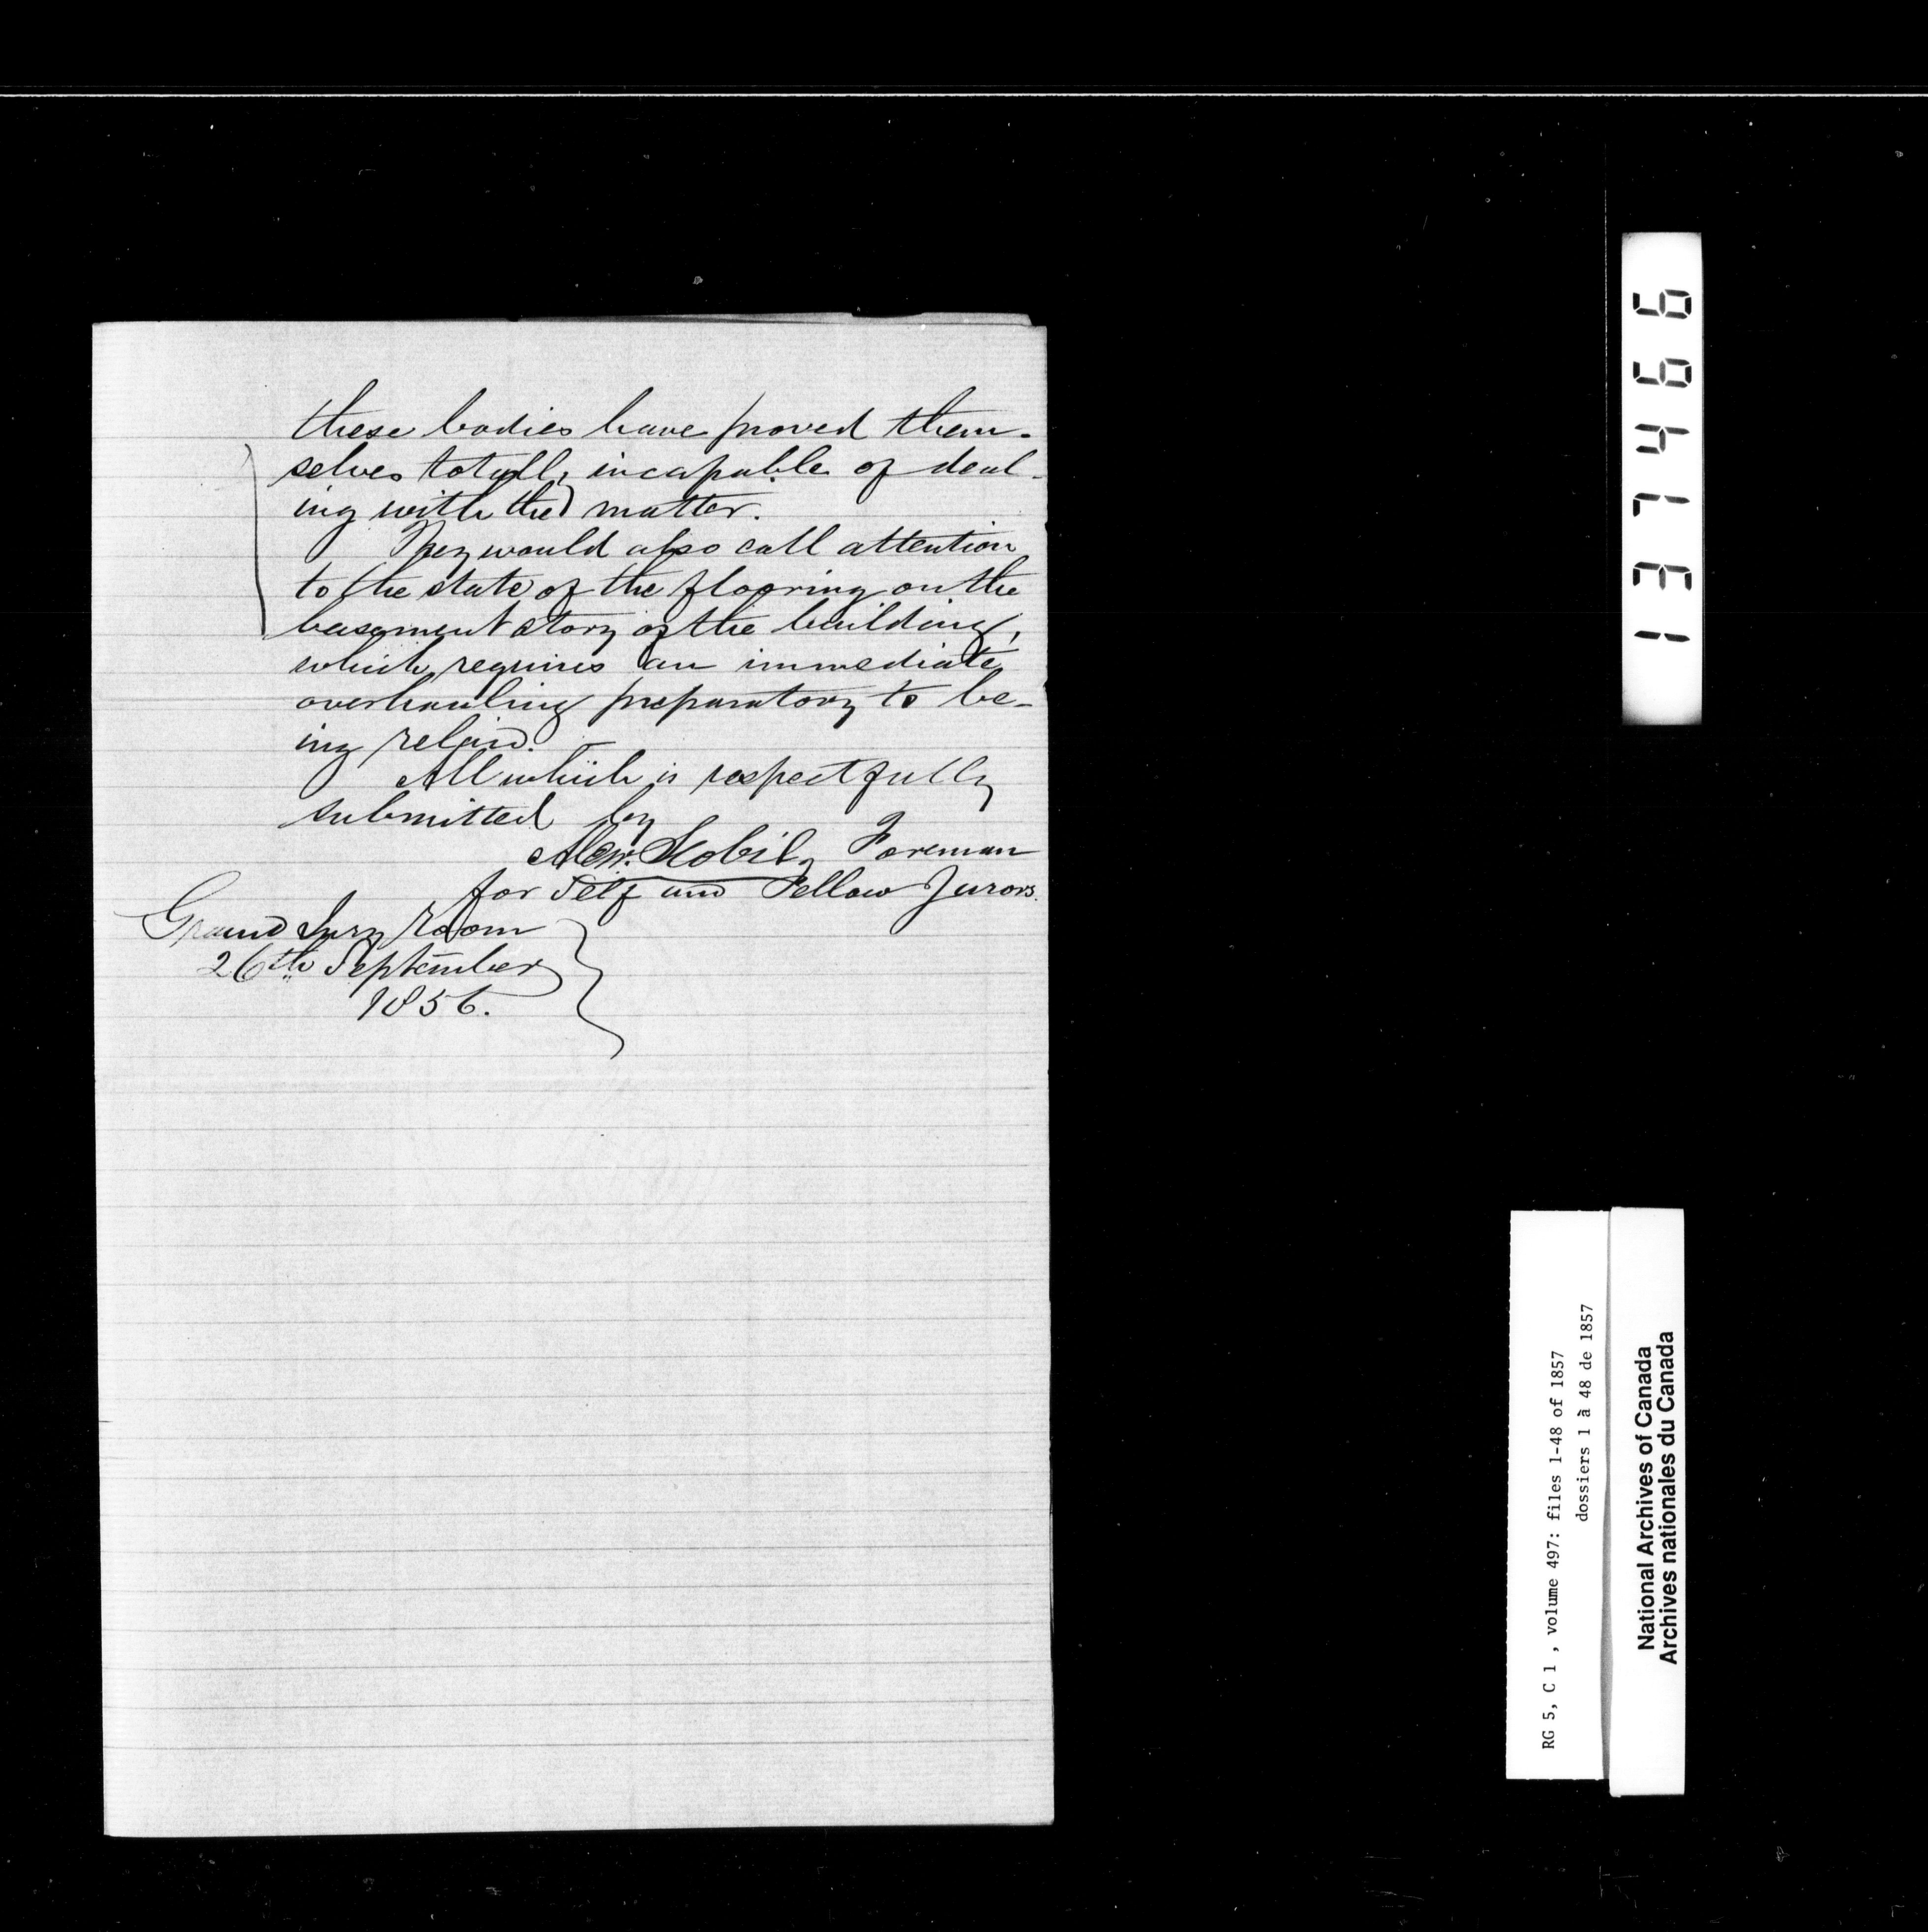 these bodies have proved them-
selves totally incapable of deal-
ing with the matter.
They would also call attention
to the state of the flooring on the
basement story of the building,
which requires an immediate
overhauling preparatory to be-
ing relaid.
All which is respectfully
submitted by
Foreman
for Self and Fellow Jurors.
Grand Jury Room
26th September
1856.
137466
RG 5, C 1 , volume 497: files 1-48 of 1857
dossiers 1 à 48 de 1857
National Archives of Canada
Archives nationales du Canada